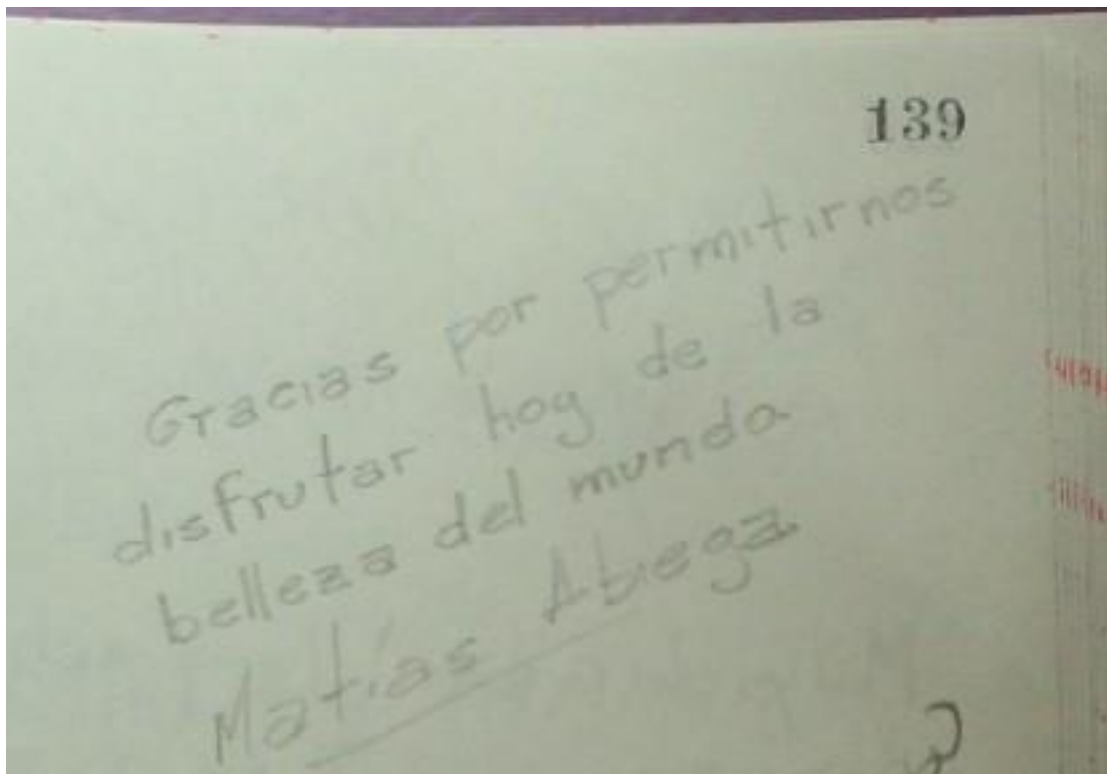 139
Gracias por permitirnos
disfrutar hoy de la
belleza del mundo
Matías Abrega